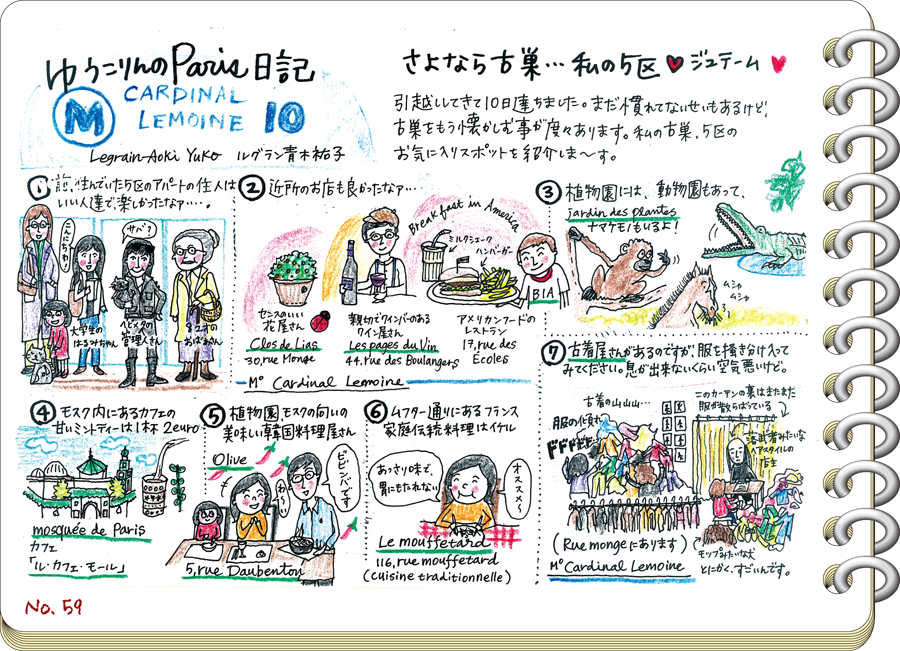 ゆうこりんのParis日記
M CARDINAL
LEMOINE 10
Legrain-Aoki Yuko ルグラン青木祐子
さよなら古巣…私の5区♥ジュテーム♥
引越ししてきて10日達ちました。まだ慣れてないせいもあるけど、
古巣をもう懐かしむ事が度々あります。私の古巣、5区の
お気に入りスポットを紹介しま〜す。
① 前、住んでいた5区のアパートの住人は
いい人達で楽しかったなァ…。
こんにちわ!
サバ?
大学生の
はるみちゃん
ヘビメタの
管理人さん
82才の
おばあさん
② 近所のお店も良かったなァ…
センスのいい
花屋さん
Clos de Lias
30, rue Monge
親切でワインバーのある
ワイン屋さん
Les pages du Vin
44, rue des Boulangers
Breakfast in America
ミルクシェーク
ハンバーガー
BIA
アメリカンフードの
レストラン
17, rue des
Écoles
M° Cardinal Lemoine
③ 植物園には、動物園もあって、
jardin des plantes
ナマケモノもいるよ!
ムシャ
ムシャ
④ モスク内にあるカフェの
甘いミンティーは1杯2euro
mosquée de Paris
カフェ
「ル・カフェ・モール」
⑤ 植物園、モスクの向いの
美味しい韓国料理屋さん
Olive
わ〜い
ビビンバです
5, rue Daubenton
⑥ ムフタール通りにあるフランス
家庭伝統料理はイケル
あっさり味で、
胃にもたれない
オススメ〜
Le mouffetard
116, rue mouffetard
(cuisine traditionnelle)
⑦ 古着屋さんがあるのですが、服を掻き分け入って
みてください。息が出来ないくらい空気悪いけど。
古着の山山山…
服の化身
このカーテンの裏はまだまだ
服が散らばっている
落武者みたいな
ヘアスタイルの
店主
(Rue mongeにあります)
M° Cardinal Lemoine
モップみたいな犬
とにかく、すごいんです。
No. 59